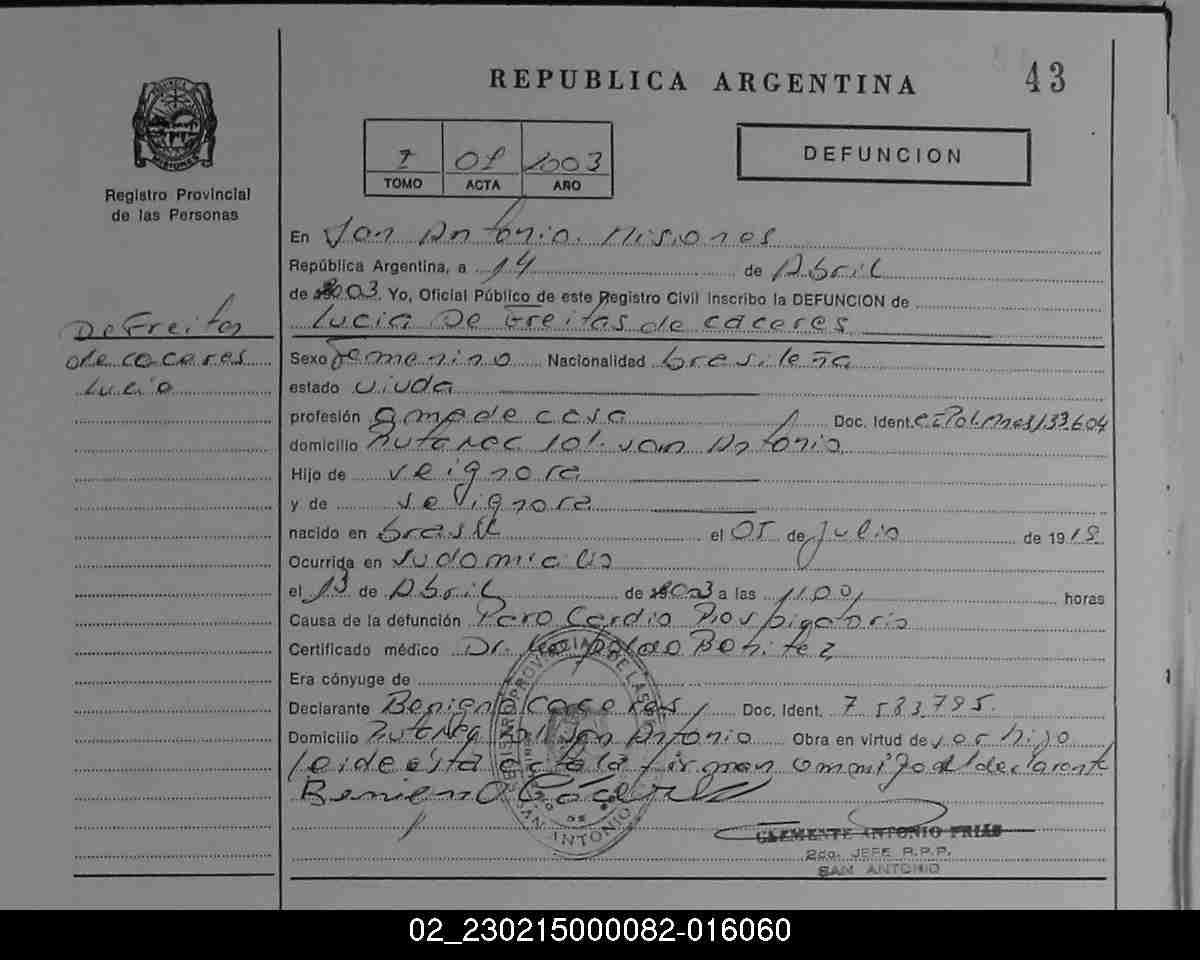 REPUBLICA ARGENTINA
43
Registro Provincial
de las Personas
I 01 2003
TOMO ACTA AÑO
DEFUNCION
En San Antonio. Misiones
República Argentina, a 14 de Abril
de 2003. Yo, Oficial Público de este Registro Civil inscribo la DEFUNCION de
Lucia De Freitas de caceres
De Freitas
de caceres
Lucia
Sexo Femenino Nacionalidad brasileña
estado viuda
profesión ama de casa Doc. Ident. 133.604
domicilio Ruta Nac 101. San Antonio
Hijo de se ignora
y de se ignora
nacido en brasil el 05 de Julio de 1918
Ocurrida en su domicilio
el 13 de Abril de 2003 a las 11,00 horas
Causa de la defunción Paro Cardio Respiratorio
Certificado médico Dr. Benitez
Era cónyuge de
Declarante Benigno Caceres, Doc. Ident. 7.583.795.
Domicilio Ruta Nac 101 San Antonio Obra en virtud de ser hijo
leide esta acta la firman conmigo el declarante
Benigno Cáceres
SAN ANTONIO
CLEMENTE ANTONIO FRIAS
2do. JEFE R.P.P.
SAN ANTONIO
02_230215000082-016060